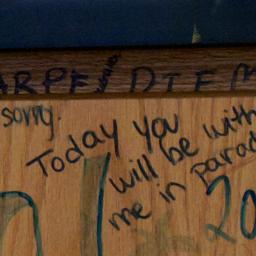 ARPE DIEM
sorry.
Today you
will be with
me in parad
20